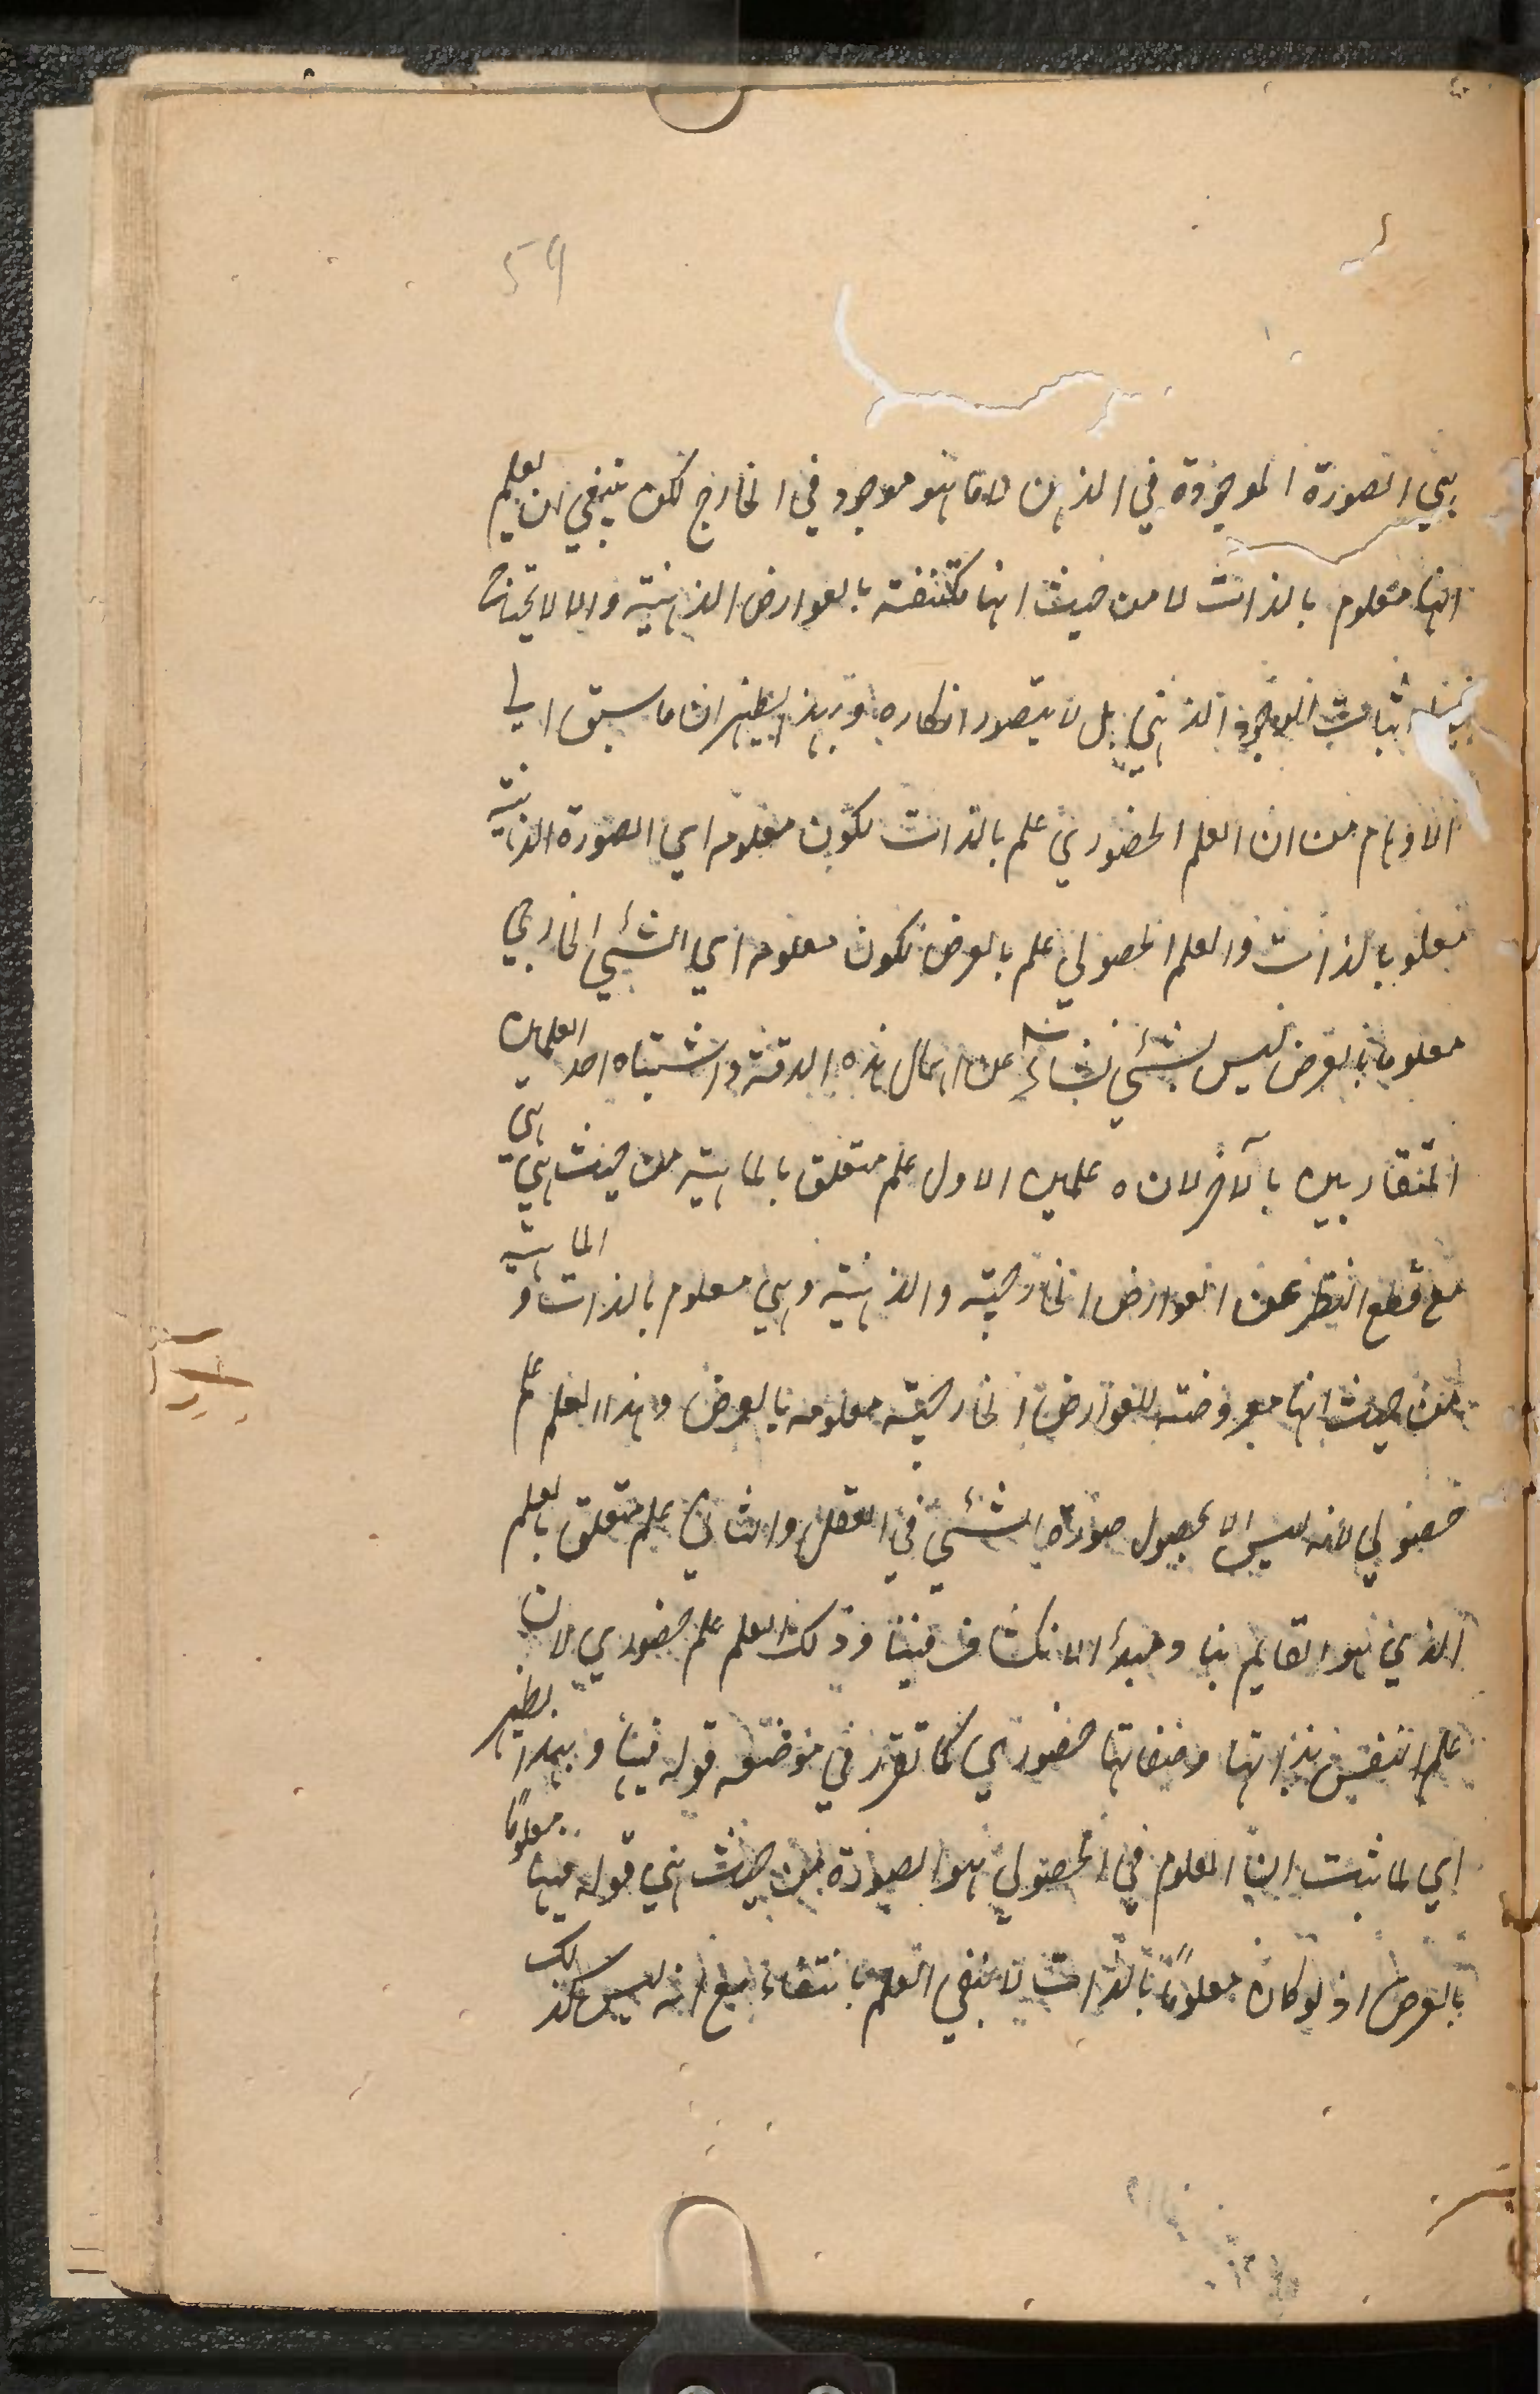 59
هي الصورة الموجودة في الذهن لا ما هو موجود في الخارج لكن ينبغي ان يعلم
انها معلوم بالذات لا من حيث انها مكتنفة بالعوارض الذهنية والا لا يحتاج
اثبات الوجود الذهني بل لا يتصور انكاره وبهذا يظهر ان ما سبق الى
الاوهام من ان العلم الحضوري علم بالذات لكون معلومه اي الصورة الذهنية
معلوما بالذات والعلم الحصولي علم بالعرض لكون معلومه اي الشيء الخارجي
معلوما بالعرض ليس بشيء نشأ عن اهمال هذه الدقة واشتباه احد العلمين
المتقاربين بالآخر لان ه علمين الاول علم متعلق بالماهية من حيث هي هي
مع قطع النظر عن العوارض الخارجية والذهنية وهي معلوم بالذات و الماهية
من حيث انها معروضة للعوارض الخارجية معلومه بالعرض وهذا العلم علم
حصولي لانه ليس الا بحصول صورة الشيء في العقل والثاني علم متعلق بالعلم
الذي هو القايم بها ومبدأ الانكشاف فينا وذلك العلم علم حضوري لان
علم النفس بذاتها وصفاتها حضوري كما تقرر في موضعه قوله فيها وبهذا يظهر
اي لما ثبت ان المعلوم في الحصولي هو الصورة من حيث هي قوله فيها معلومًا
بالعرض اذ لو كان معلومًا بالذات لانتفي العلم بانتفاء مع انه ليس كذلك